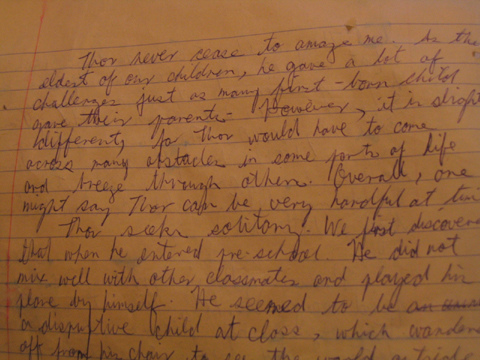 Thor never cease to amaze me. As the
eldest of our children, he gave a lot of
challenges just as many first-born child
gave their parents. However, it is slight
different, for Thor would have to come
across many obstacles in some parts of life
and breeze through others. Overall, one
might say Thor can be very handful at
Thor seeks solitary. We first discovere
that when he entered pre-school. He did not
mix well with other classmates and played his
by himself. He seemed to be
a disruptive child at class, which wander
off from his chair to see the world outside